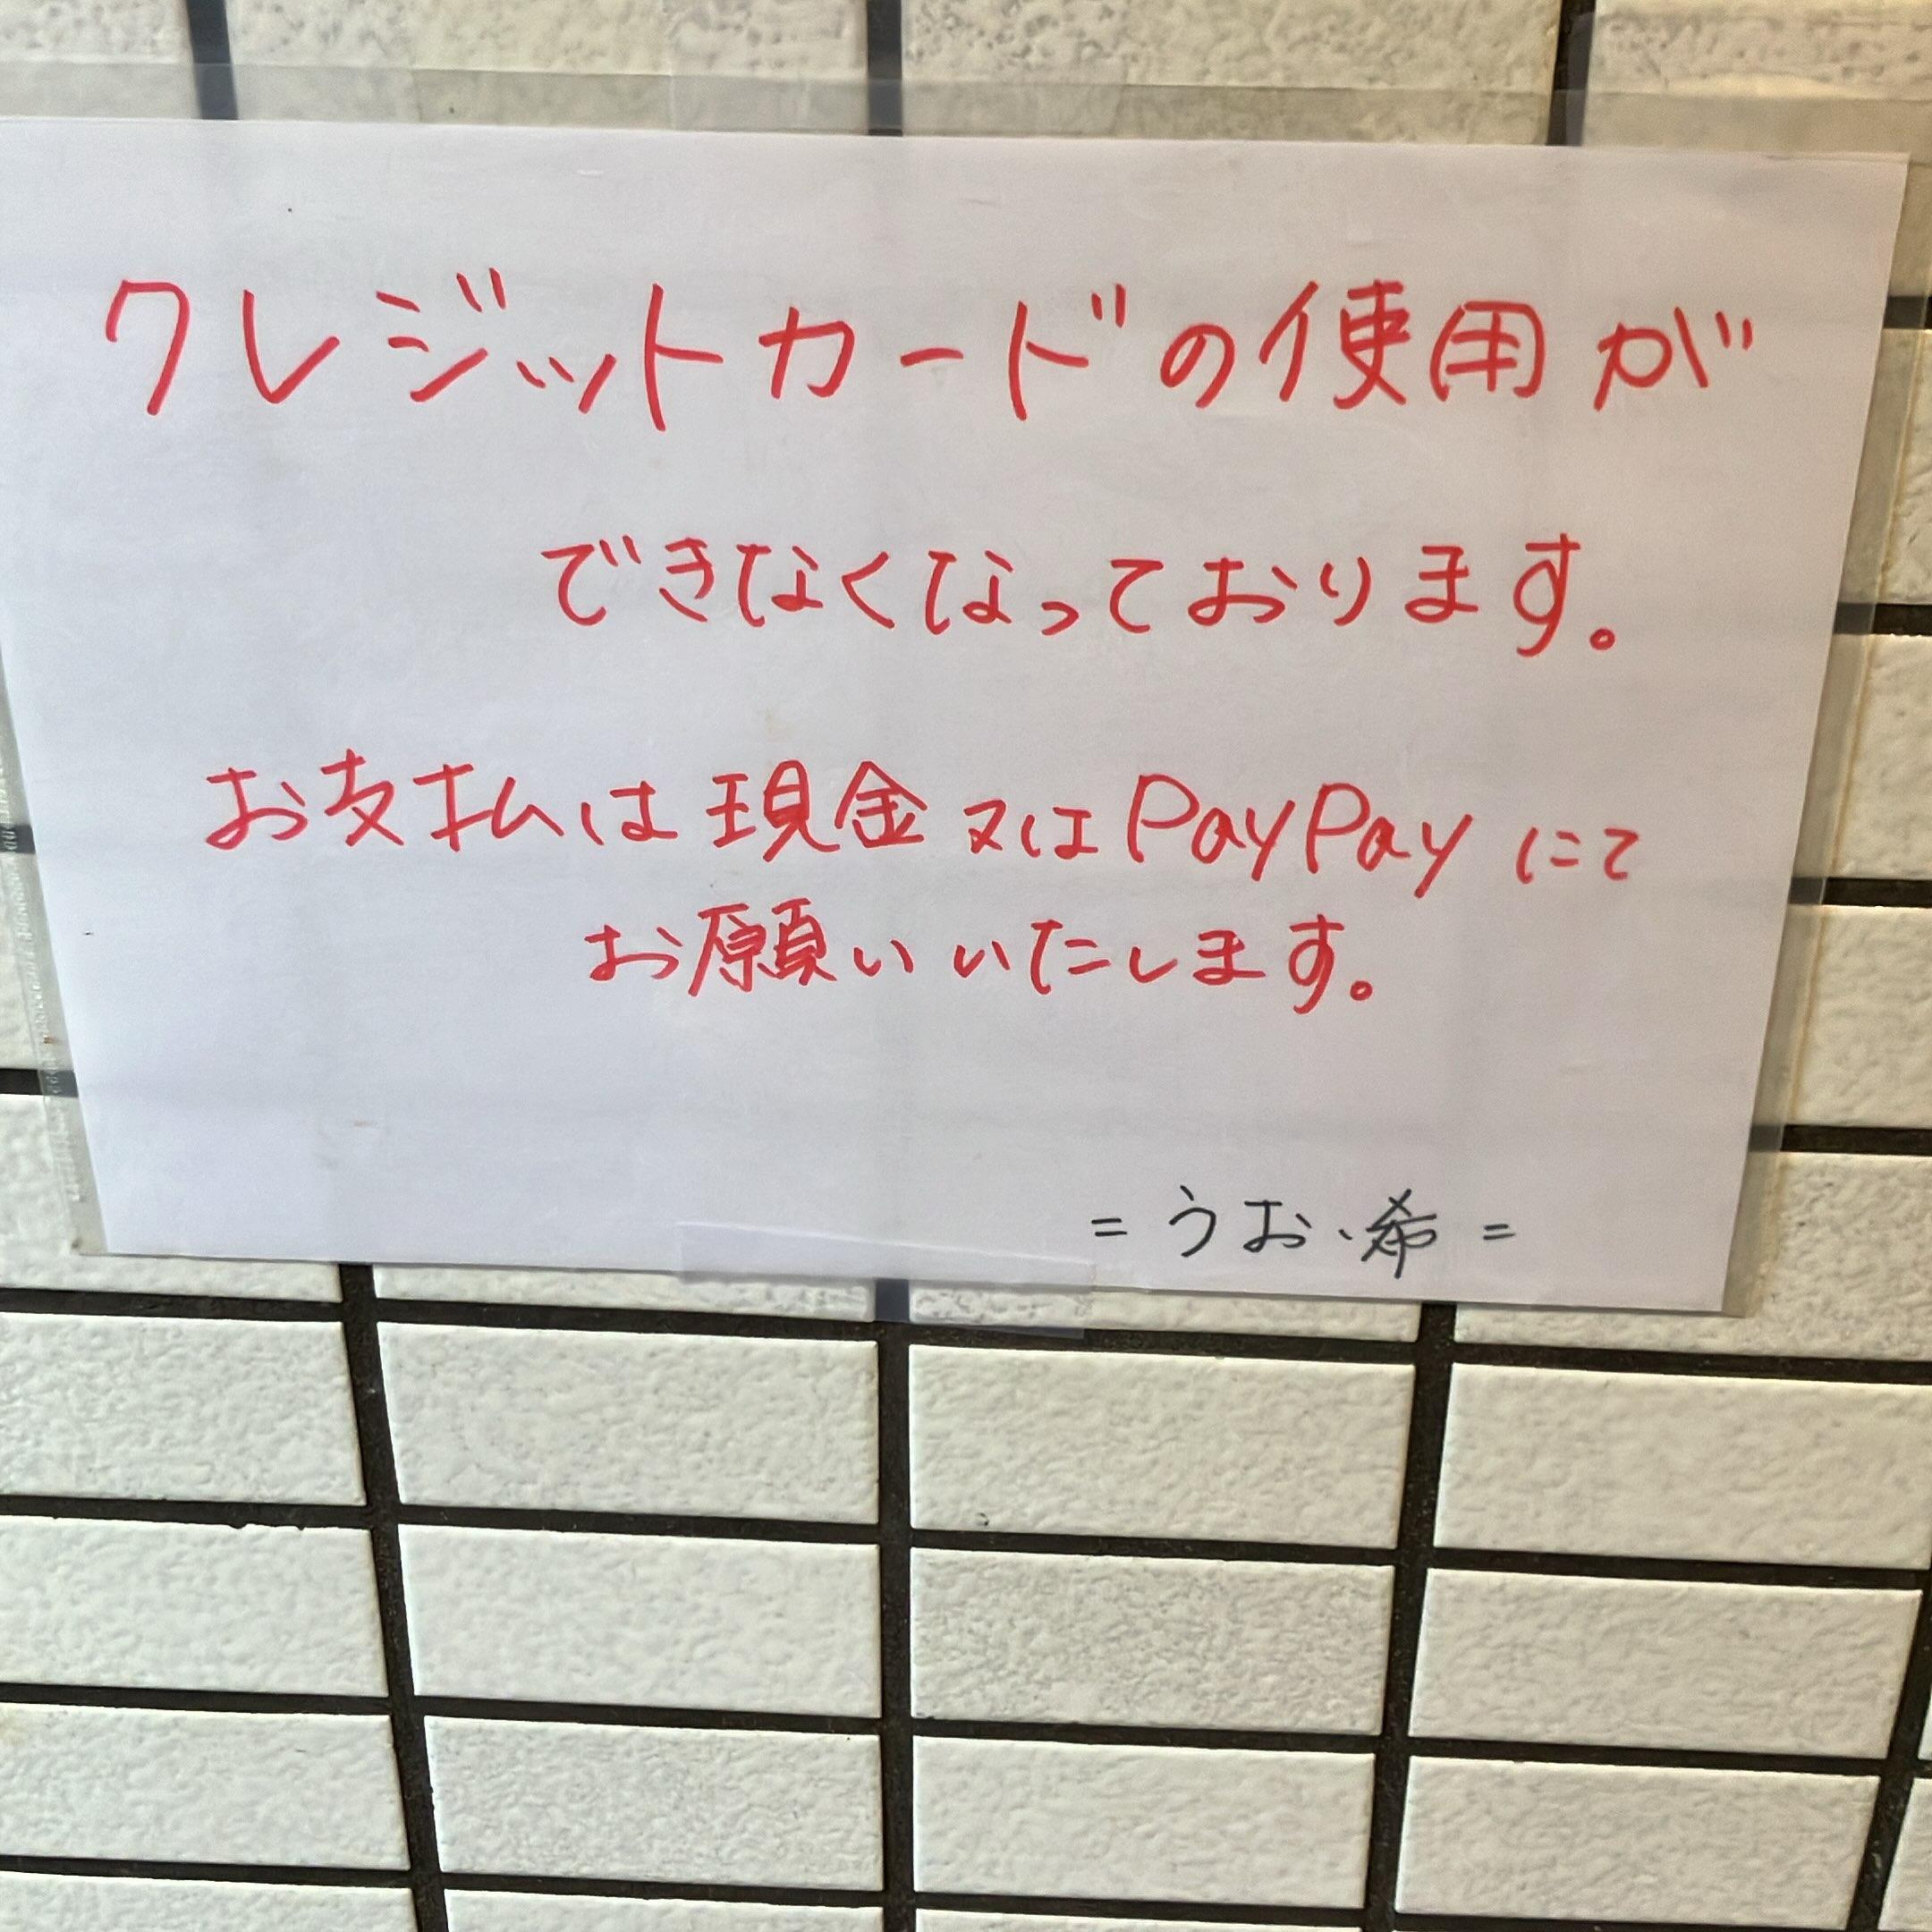 クレジットカードの使用が
できなくなっております。
お支払は現金又はPayPayにて
お願いいたします。
= うお、希 =